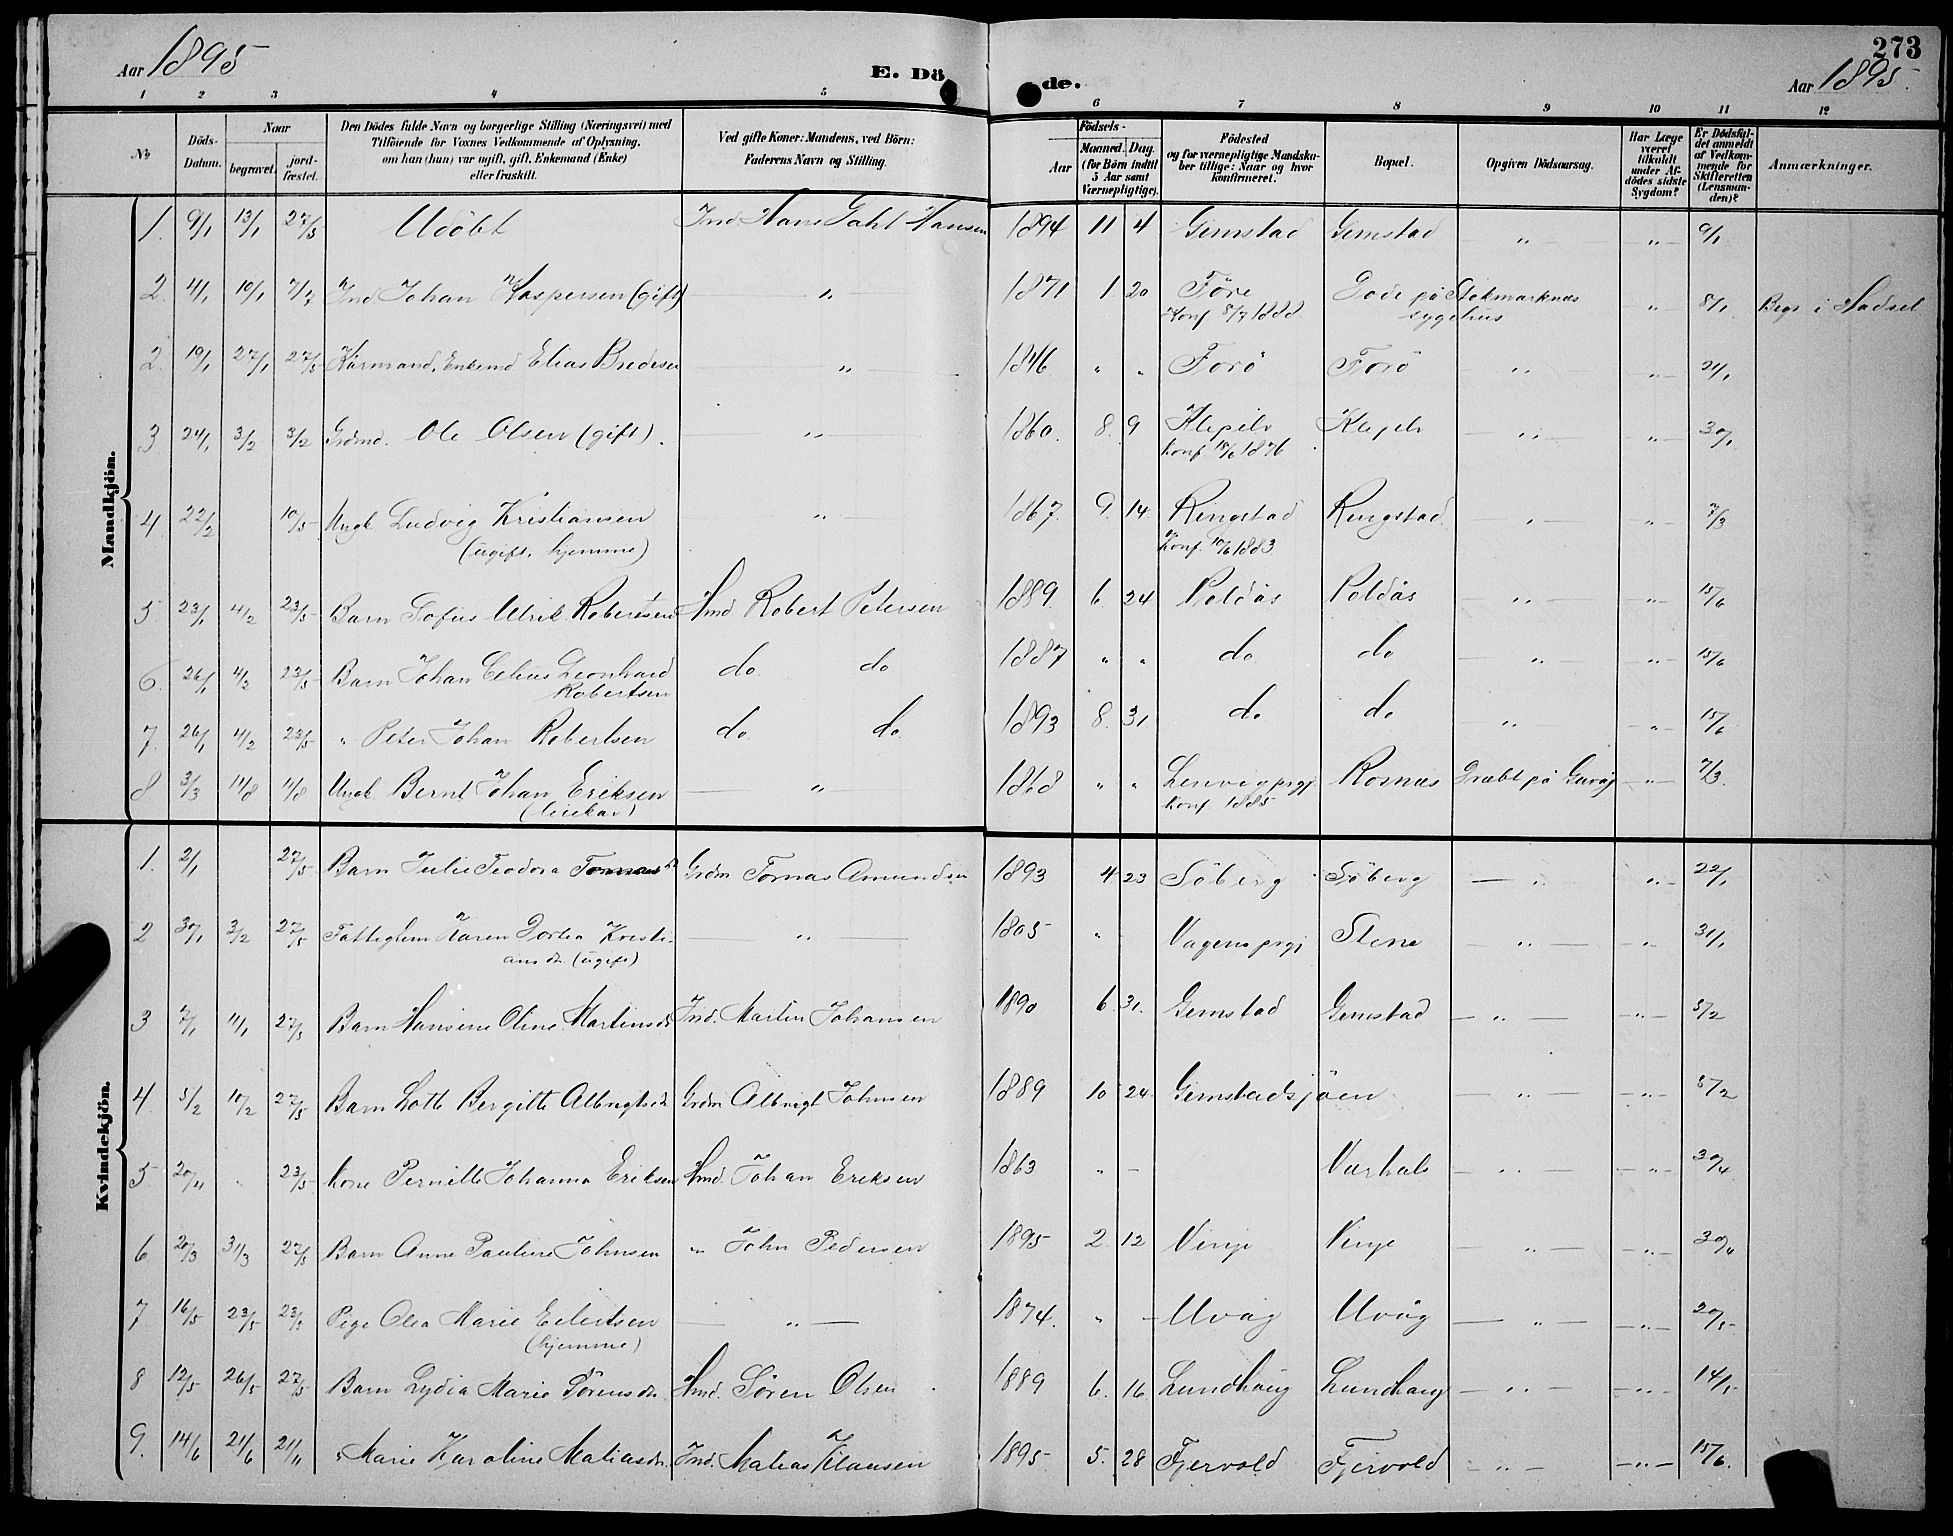 Aar 1895
E. Dö de.
273
Aar 1895.
1 2 3 4 5 6 7 8 9 10 11 12
No
Döds-Datum.
Naar
begravet.
jordfæstet.
Den Dödes fulde Navn og borgerlige Stilling (Næringsvei) med
Tilföiende for Voxnes Vedkommende af Oplysning,
om han (hun) var ugift, gift, Enkemand (Enke)
eller fraskilt.
Ved gifte Koner: Mandens, ved Börn:
Faderens Navn og Stilling.
Aar
Födsels-
Maaned. Dag.
(for Börn indtil
5 Aar samt
Værnepligtige).
Födested
og for værnepligtige Mandska-
ber tillige: Naar og hvor
konfirmeret.
Bopæl.
Opgiven Dödsaarsag.
Har Læge
været
tilkaldt
under Af-
dödes sidste
Sygdom?
Er Dödsfal-
det anmeldt
af Vedkom-
mende for
Skifteretten
(Lensman-
den)?
Anmærkninger.
Mandkjön.
1. 9/1 13/1 27/5 Udöbt Ind. Hans Dahl Hansen 1894 11 4 Gimstad Gimstad " " 9/1
2. 4/1 10/1 Ind Johan Kaspersen (gift) " 1871 1 20 Före Döde på Stokmarknæs " 8/1 Begr i Hadsel
Konf 1888. sygehus
2. 19/1 27/1 27/5 Kårmand, Enkemd Elias Bredesen " 1846 " " Forö Forö " " 24/1
3 24/1 3/2 3/2 Grdmd. Ole Olsen (gift). " 1860. 8. 9 Klepelv Klepelv " " 30/1
konf 1876
4 22/2 10/5 Ungk Ludvig Kristiansen " 1867. 9. 14 Ringstad Ringstad " " 7/3
(ugift, hjemme) Konf. 10/6 1883
5. 23/1 4/2 23/5 Barn Sofus Ulrik Robertsen Hmd Robert Petersen 1889. 6. 24 Poldås Poldås " " 15/6
6. 26/1 4/2 23/5 Barn Johan Leonhard do do 1887 " " do do " " 15/6
Robertsen
7. 26/1 4/2 23/5 " Peter Johan Robertsen do do 1893 8. 31 do do " " 15/6
8 3/3 11/8 11/8 Ungk Bernt Johan Eriksen " 1868 " " Lenvig prgj Rosnæs Dræbt på Guvåg " 7/3.
konf 1885
Kvindekjön.
1. 2/1 27/5 Barn Julie Teodora Tomasdt Grdm Tomas Amundsen 1893 4 23 Söberg Söberg " " 22/1
2 30/1 3/2 27/5 Fattiglem Karen Dortea Kristi- " 1805 " Vagens prgj Stene " " 31/1
ansdr (ugift)
3 7/1 11/1 27/5 Barn Hansine Oline Martinsdt Ind. Martin Johansen 1890 6. 31. Gimstad Gimstad " " 5/2
4. 5/2 10/2 27/5 Barn Lotte Bergitte Albrigtsdr Grdm Albrigt Johnsen 1889 10 24 Gimstadsjöen " " 5/2
5 20/4 " 23/5 Kone Pernille Johanna Eriksen Hmd. Johan Eriksen 1863 " Varhals " " 30/4
6 20/3 31/3 27/5 Barn Anne Pauline Johnsen " John Pedersen 1895 2 12 Vinje Vinje " " 30/4
7 16/5 23/5 23/5 Pige Olea Marie Eilertsen " 1874. " Uvåg Uvåg " " 20/5
(hjemme)
8 12/5 26/5 27/5 Barn Lydia Marie Sörensdr Hmd. Sören Olsen 1889 6. 16 Lundhaug Lundhaug " " 14/5
9. 14/6 21/6 21/11 " Marie Karoline Matiasdr. Ind. Matias Klausen 1895 5. 28 Fjervold Fjervold " " 15/6.